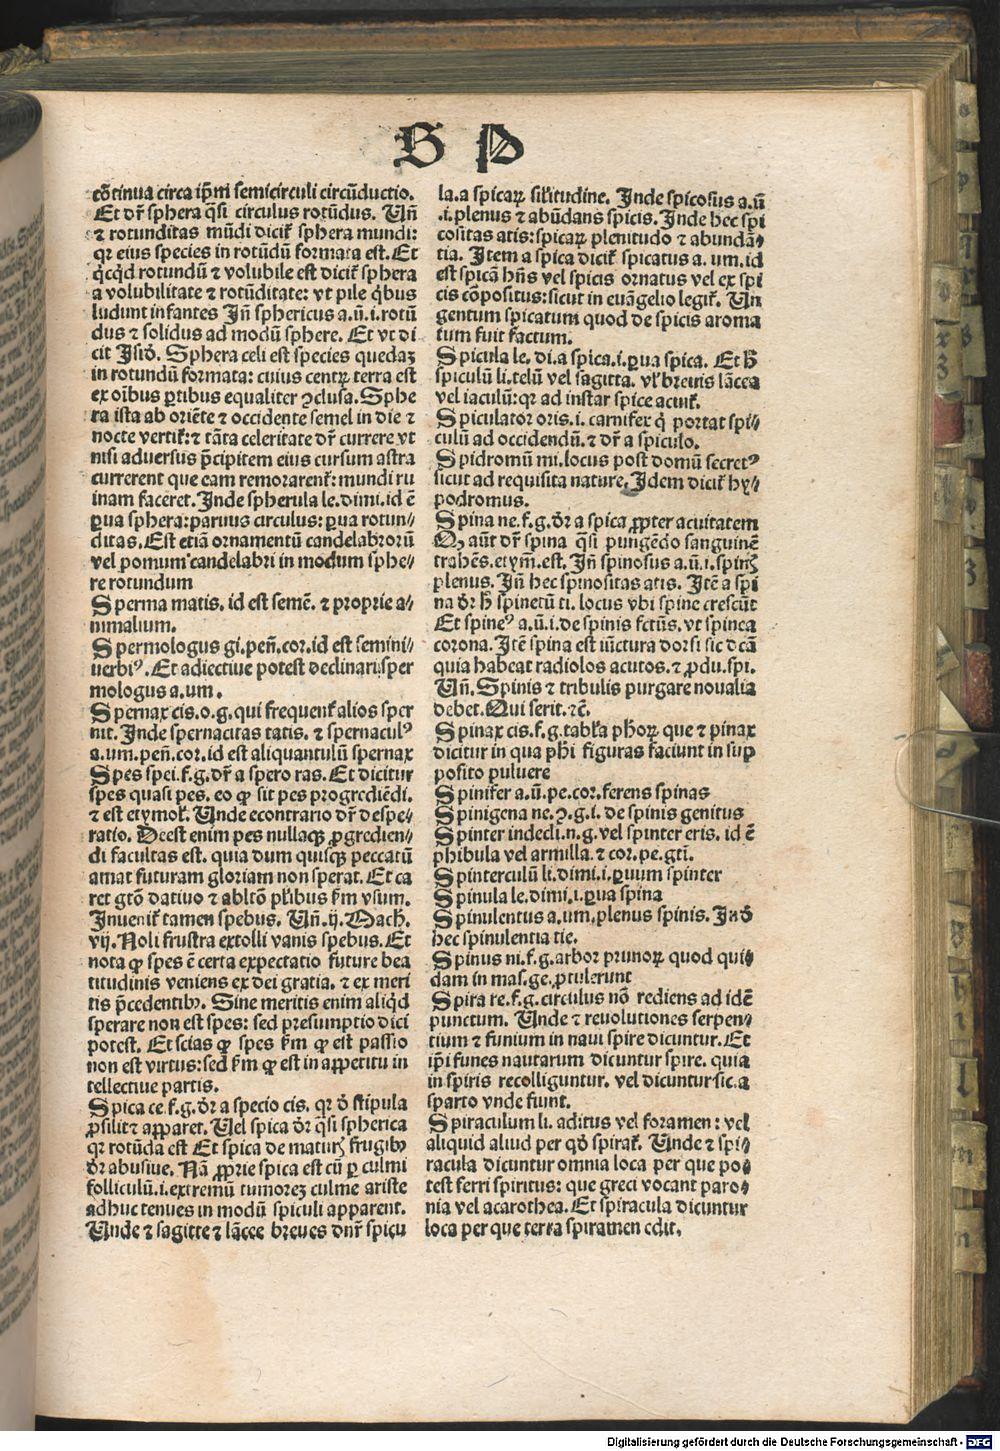 S P
cōtinua circa ip̄m semicirculi circūductio.
Et dr̄ sphera q̄si circulus rotūdus. Un̄
⁊ rotunditas mūdi dicit᷑ sphera mundi:
qꝛ eius species in rotūdū formata est. Et
q̇cq̇d rotundū ⁊ volubile est dicit᷑ sphera
a volubilitate ⁊ rotūditate: vt pile q̇bus
ludunt infantes Jn̄ sphericus a.ū.i.rotū
dus ⁊ solidus ad modū sphere. Et vt di
cit Jsid̄. Sphera celi est species quedaꝫ
in rotundū formata: cuius centꝝ terra est
ex oībus ꝑtibus equaliter ꝯclusa. Sphe
ra ista ab oriēte ⁊ occidente semel in die ⁊
nocte vertit᷑:⁊ tāta celeritate dr̄ currere vt
nisi adversus p̄cipitem eius cursum astra
currerent que eam remoꝛarent᷑: mundi ru
inam faceret. Jnde spherula le.dimi.id ē
ꝑua sphera: paruus circulus: ꝑua rotun⸗
ditas. Est etiā ornamentū candelabroꝛū
vel pomum candelabri in modum sphe⸗
re rotundum
Sperma matis. id est semē. ⁊ proprie a⸗
nimalium.
Spermologus gi.pen̄.cor.id est semini⸗
uerbiꝰ. Et adiectiue potest declinari:sper
mologus a.um.
Spernax cis.o.g.qui frequent᷑ alios sper
nit. Jnde spernacitas tatis. ⁊ spernaculꝰ
a.um.pen̄.cor.id est aliquantulū spernax
Spes spei.f.g.dr̄ a spero ras. Et dicitur
spes quasi pes. eo ꝙ sit pes progrediēdi.
⁊ est etymol᷑. Unde econtrario dr̄ despe⸗
ratio. Deest enim pes nullaqꝫ ꝓgredien⸗
di facultas est. quia dum quisqꝫ peccatū
amat futuram gloriam non sperat. Et ca
ret gtō dativo ⁊ abltō pl̄ibus ẜm vsum.
Jnuenit᷑ tamen spebus. Un̄.ij.Mach̄.
vij. Noli frustra extolli vanis spebus. Et
nota ꝙ spes ē certa expectatio future bea
titudinis veniens ex dei gratia. ⁊ ex meri
tis p̄cedentibꝰ. Sine meritis enim aliq̇d
sperare non est spes: sed presumptio dici
potest. Et scias ꝙ spes ẜm ꝙ est passio
non est virtus: sed ẜm ꝙ est in appetitu in
tellective partis.
Spica ce.f.g.dr̄ a specio cis. qꝛ d̄ stipula
ꝓsilit⁊ apparet. Uel spica dr̄ q̄si spherica
qꝛ rotūda est Et spica de maturꝭ frugibꝰ
dr̄ abusiue. Nā ꝓprie spica est cū ꝑ culmi
folliculū.i.extremū tumoreꝫ culme ariste
adhuc tenues in modū spiculi apparent.
Unde ⁊ sagitte ⁊ lācee breues dnr̄ spicu
la.a spicaꝝ sil̄itudine. Jnde spicosus a.ū
.i.plenus ⁊ abūdans spicis. Jnde hec spi
cositas atis: spicaꝝ plenitudo ⁊ abundā⸗
tia. Jtem a spica dicit᷑ spicatus a. um. id
est spicā hn̄s vel spicis ornatus vel ex spi
cis cōpositus: sicut in euāgelio legit᷑. Un
gentum spicatum quod de spicis aroma
tum fuit factum.
Spicula le. di.a spica.i.ꝑua spica. Et h̄
spiculū li.telū vel sagitta. vl̄ brevis lācea
vel iaculū: qꝛ ad instar spice acuit᷑.
Spiculator oris.i. carnifex q̇ portat spi⸗
culū ad occidendū. ⁊ dr̄ a spiculo.
Spidromū mi.locus post domū secretꝰ
sicut ad requisita nature. Jdem dicit᷑ hy⸗
podromus.
Spina ne.f.g. dr̄ a spica ꝓpter acuitatem
Qꝫ aūt dr̄ spina q̄si pungēdo sanguinē
trahēs. etym̄.est. Jn̄ spinosus a.ū.i.spinꝭ
plenus. Jn̄ hec spinositas atis. Jtē a spi
na dr̄ h̄ spinetū ti. locus vbi spine crescūt
Et spineꝰ a.ū.i.de spinis fctūs. vt spinea
corona. Jtē spina est iūctura dorsi sic dcā
quia habeat radiolos acutos. ⁊ ꝓdu.spi.
Un̄. Spinis ⁊ tribulis purgare noualia
debet. Qui serit. ⁊c̄.
Spinax cis.f.g.tabl̄a ph̄oꝝ que ⁊ pinax
dicitur in qua ph̄i figuras faciunt in suꝑ
posito puluere
Spinifer a.ū.pe.cor.ferens spinas
Spinigena ne.ꝯ.g.i. de spinis genitus
Spinter indecli.n.g.vel spinter eris. id ē
phibula vel armilla. ⁊ cor.pe.gtī.
Spinterculū li.dimi.i.ꝑuum spinter
Spinula le.dimi.i.ꝑua spina
Spinulentus a.um.plenus spinis. Jnd̄
hec spinulentia tie.
Spinus ni.f.g.arbor prunoꝝ quod qui⸗
dam in mas.ge.ꝓtulerunt
Spira re.f.g.circulus nō rediens ad idē
punctum. Unde ⁊ revolutiones serpen⸗
tium ⁊ funium in naui spire dicuntur. Et
ip̄i funes nautarum dicuntur spire. quia
in spiris recolliguntur. vel dicuntur sic.a
sparto vnde fiunt.
Spiraculum li. aditus vel foramen: vel
aliquid aliud per qd̄ spirat᷑. Unde ⁊ spi⸗
racula dicuntur omnia loca per que po⸗
test ferri spiritus: que greci vocant paro⸗
nia vel acarothea. Et spiracula dicuntur
loca per que terra spiramen edit.
Digitalisierung gefördert durch die Deutsche Forschungsgemeinschaft - DFG